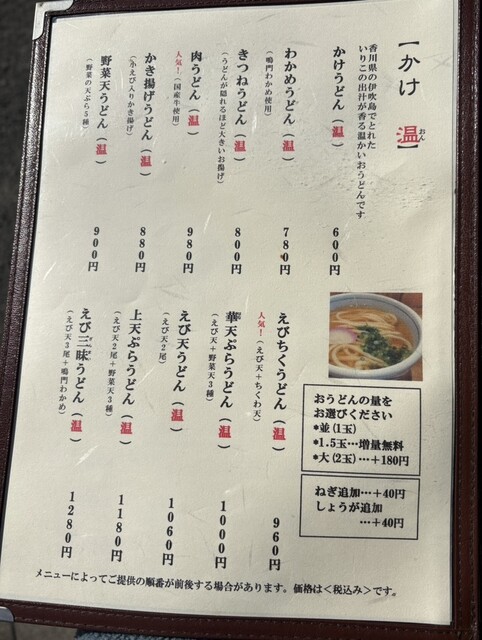 【かけ 温】
おん
香川県の伊吹島でとれた
いりこの出汁が香る温かいおうどんです
かけうどん(温)
600円
わかめうどん(温)
(鳴門わかめ使用)
780円
きつねうどん(温)
(うどんが隠れるほど大きいお揚げ)
800円
肉うどん(温)
人気！(国産牛使用)
980円
かき揚げうどん(温)
(小えび入りかき揚げ)
880円
野菜天うどん(温)
(野菜の天ぷら5種)
900円
えびちくうどん(温)
人気！(えび天+ちくわ天)
960円
華天ぷらうどん(温)
(えび天+野菜天3種)
1000円
えび天うどん(温)
(えび天2尾)
1060円
上天ぷらうどん(温)
(えび天2尾+野菜天3種)
1180円
えび三昧うどん(温)
(えび天3尾+鳴門わかめ)
1280円
おうどんの量を
お選びください
*並(1玉)
*1.5玉…増量無料
*大(2玉)…+180円
ねぎ追加…+40円
しょうが追加
…+40円
メニューによってご提供の順番が前後する場合があります。価格は<税込み>です。